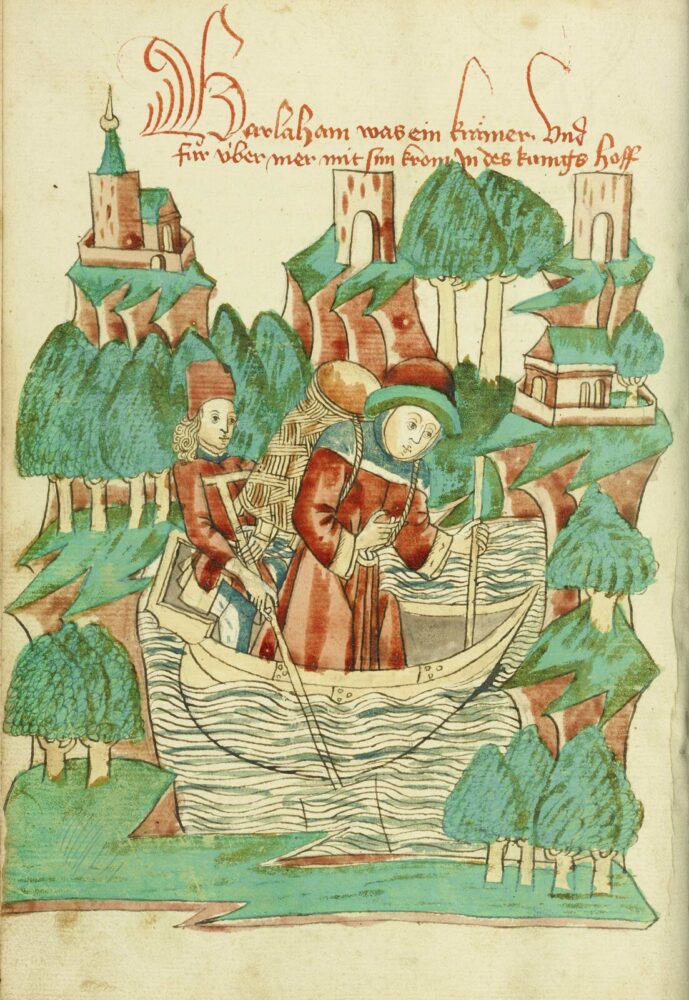 Barlaham was ein krämer. Und
fůr v̈ber mer mit sim krom Jn des kunigs hoff